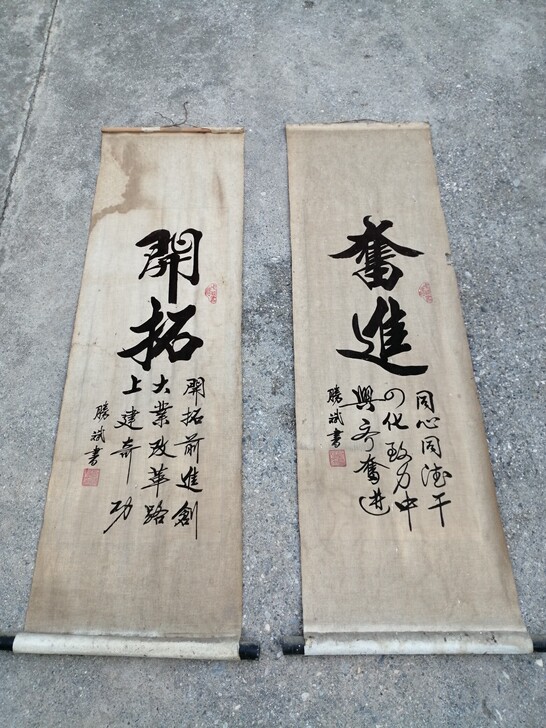 奮進
同心同德干
四化致力中
興齐奮进
勝斌書
開拓
開拓前進創
大業改革路
上建奇功
勝斌書